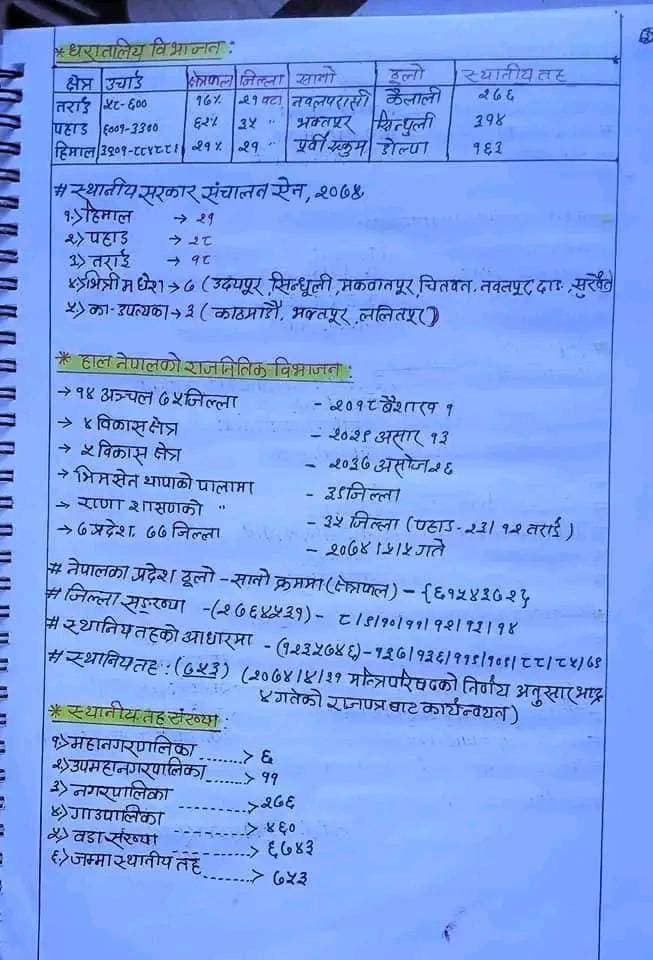 * धरातालिय विभाजन :
क्षेत्र उचाई क्षेत्रफल जिल्ला सानो ठूलो स्थानीय तह
तराई ५८-६०० १७% २१ वटा नवलपरासी कैलाली २७६
पहाड ६००१-३३०० ६२% ३५ " भक्तपुर सिन्धुली ३१४
हिमाल ३३०१-८८४८ २१% २१ " पूर्वी रुकुम डोल्पा १६३
# स्थानीय सरकार संचालन ऐन, २०७४
१.> हिमाल → २१
२> पहाड → २८
३> तराई → १८
४> भित्री मधेश → ७ ( उदयपूर, सिन्धूली, मकवानपूर, चितवन, नवलपूर, दाङ, सुर्खेत
५> का- उपत्यका → ३ ( काठमाडौं, भक्तपूर, ललितपूर )
* हाल नेपालको राजनितिक विभाजन :
→ १४ अञ्चल ७५ जिल्ला - २०१८ बैशाख १
→ ४ विकास क्षेत्र - २०२९ असार १३
→ ५ विकास क्षेत्र - २०३७ असोज २६
→ भिमसेन थापाको पालामा - ३९ जिल्ला
→ राणा शासणको " - ३५ जिल्ला ( पहाड - २३ / १२ तराई )
→ ७ प्रदेश, ७७ जिल्ला - २०७४।५।५ गते
# नेपालका प्रदेश ठूलो - सानो क्रममा (क्षेत्रफल) - {६१५४३७२}
# जिल्ला सङ्ख्या - (२७६४५३१) - ८।९।१०।११।१२।१३।१४
# स्थानिय तहको आधारमा - (१२३५७४६) - १३७।१३६।११९।१०९।८८।८५।७९
# स्थानिय तह : (७५३) (२०७४।४।२१ मन्त्रिपरिषदको निर्णय अनुसार भाद्र
५ गतेको राजपत्र बाट कार्यन्वयन )
* स्थानीय तह संख्या :
१> महानगरपालिका ........> ६
२> उपमहानगरपालिका .......> ११
३> नगरपालिका ---------> २७६
४> गाउपालिका ---------> ४६०
५> वडा संख्या ---------> ६७४३
६.> जम्मा स्थानीय तह .......> ७५३